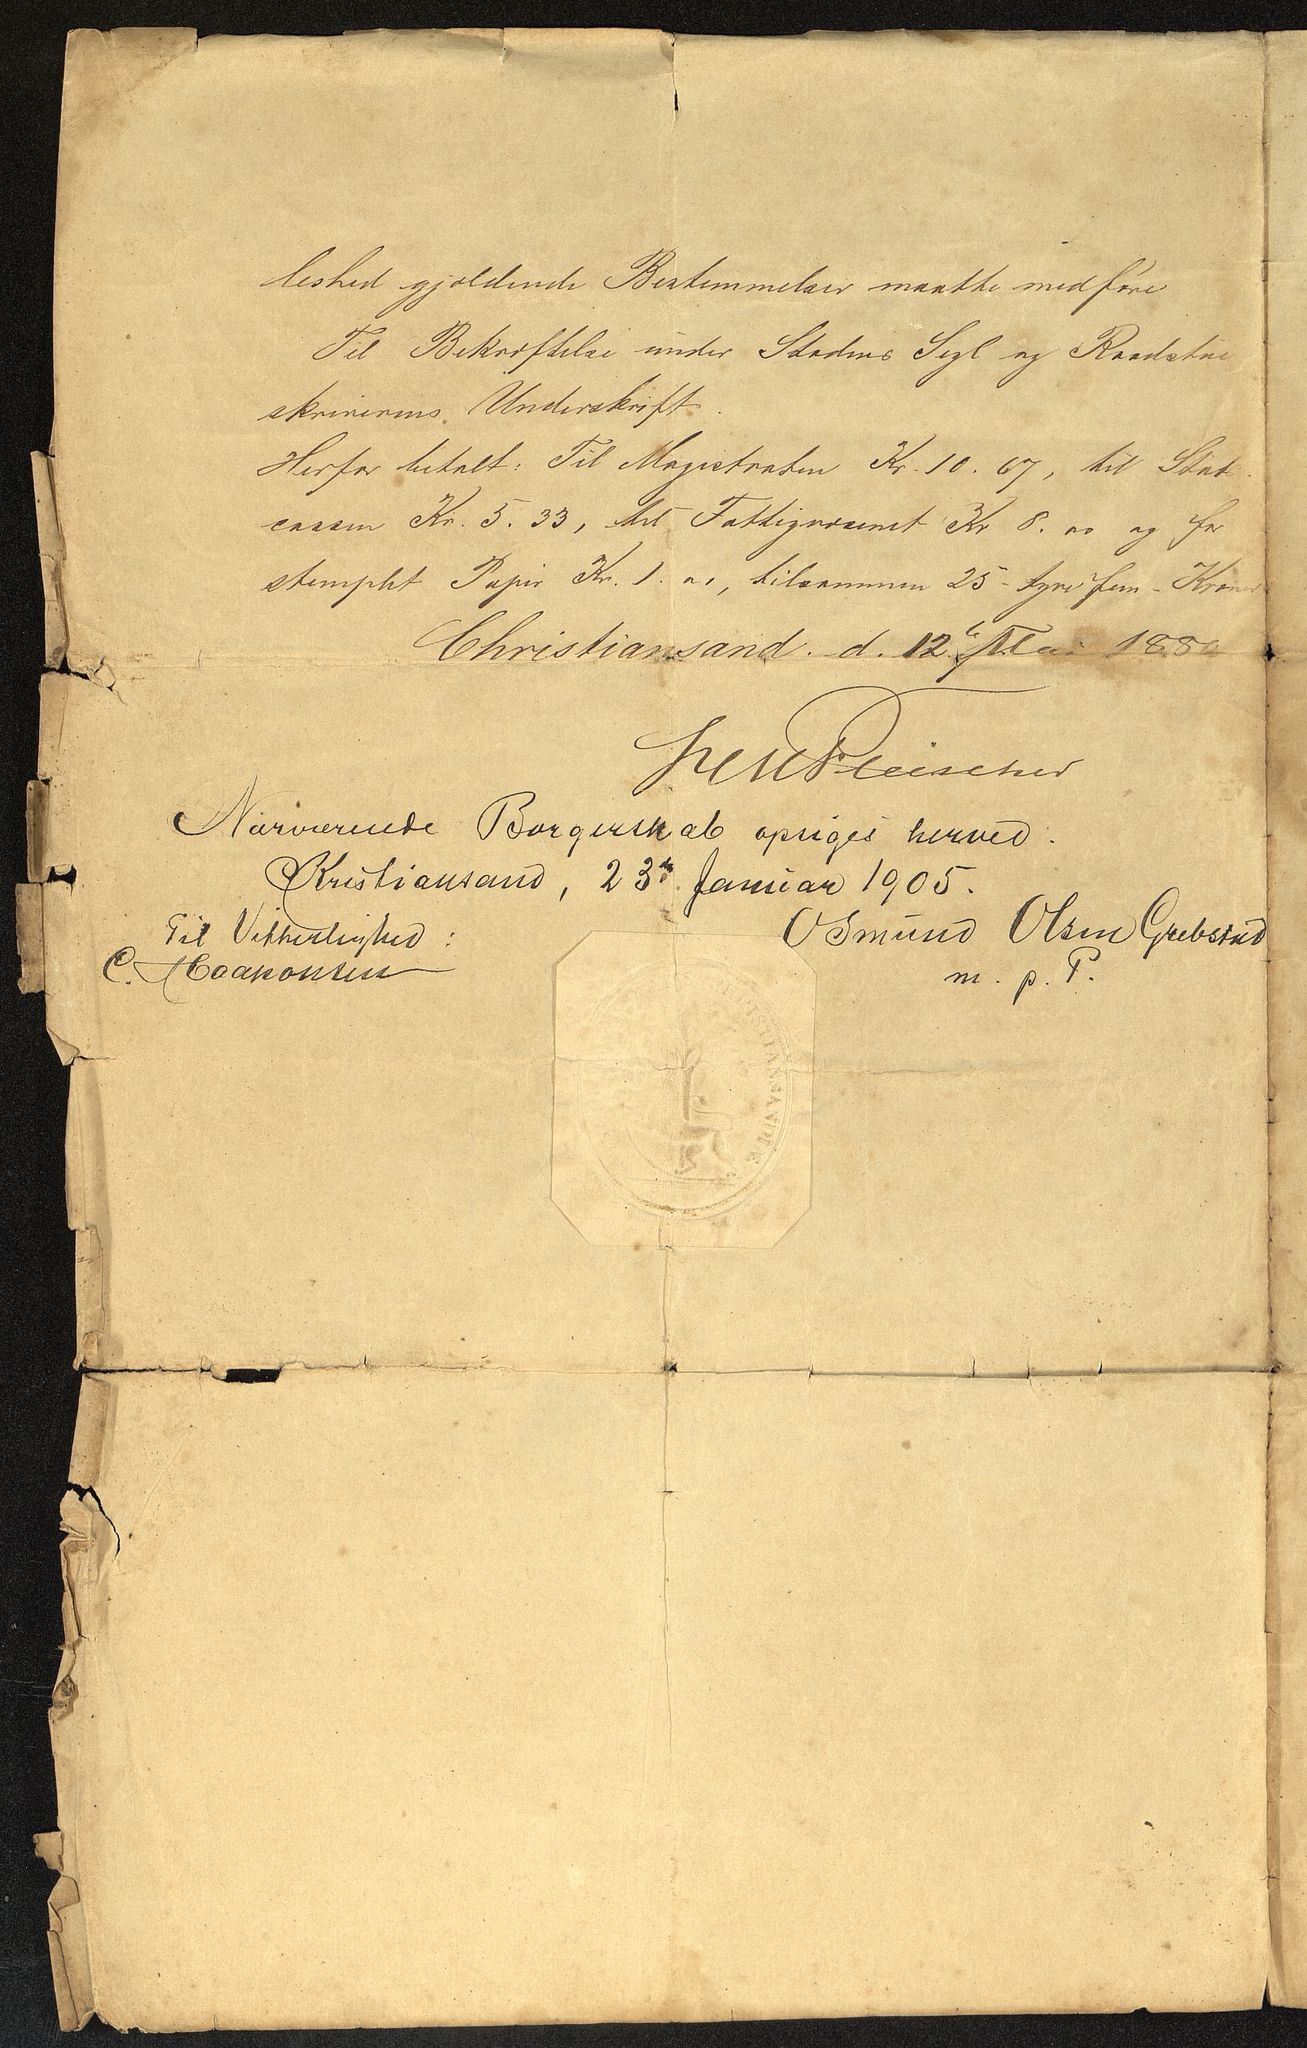 leshed gjældende Bestemmelser maatte medføre
Til Bekræftelse under Stadens Segl og Raadstue
skriverens Underskrift.
Herfor betalt: Til Magistraten Kr. 10. 67, til Stad
cassen Kr. 5. 33, til Fattigvæsenet Kr 8. oo og for
stemplet Papir Kr. 1. oo, tilsammen 25 - tyve fem - Kroner
Christiansand. d. 12te Mai
Fleischer
Nærværende Borgerskab opsiges herved.
Kristiansand, 23de Januar 1905.
Til Vitterlighed:
Osmund Olsen Grebstad
C. Haakonsen
m. p. P.